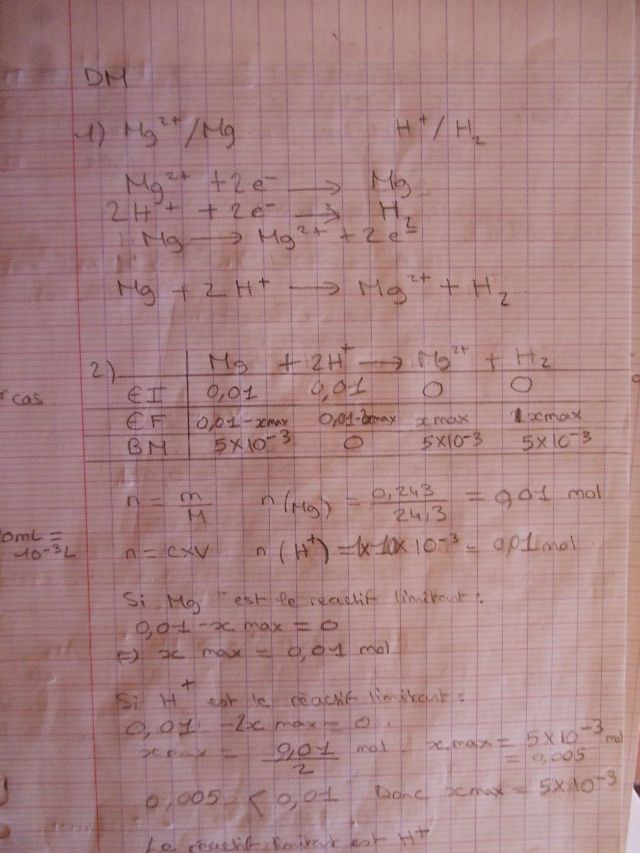 DM
1) Mg²⁺/Mg H⁺/H₂
Mg²⁺ + 2e⁻ → Mg
2H⁺ + 2e⁻ → H₂
Mg → Mg²⁺ + 2e⁻
Mg + 2H⁺ → Mg²⁺ + H₂
2) Mg + 2H⁺ → Mg²⁺ + H₂
cas EI 0,01 0,01 0 0
EF 0,01-xmax 0,01-2xmax xmax 1xmax
BM 5x10⁻³ 0 5x10⁻³ 5x10⁻³
n = m/M n(Mg) = 0,243/24,3 = 0,01 mol
0mL =
10⁻³L n = cxV n(H⁺) = 1x10x10⁻³ = 0,01 mol
Si Mg est le réactif limitant :
0,01-x max = 0
⇔ x max = 0,01 mol
Si H⁺ est le réactif limitant :
0,01 - 2x max = 0.
x max = 0,01/2 mol x max = 5x10⁻³ mol
= 0,005
0,005 < 0,01 Donc x max = 5x10⁻³
Le réactif limitant est H⁺